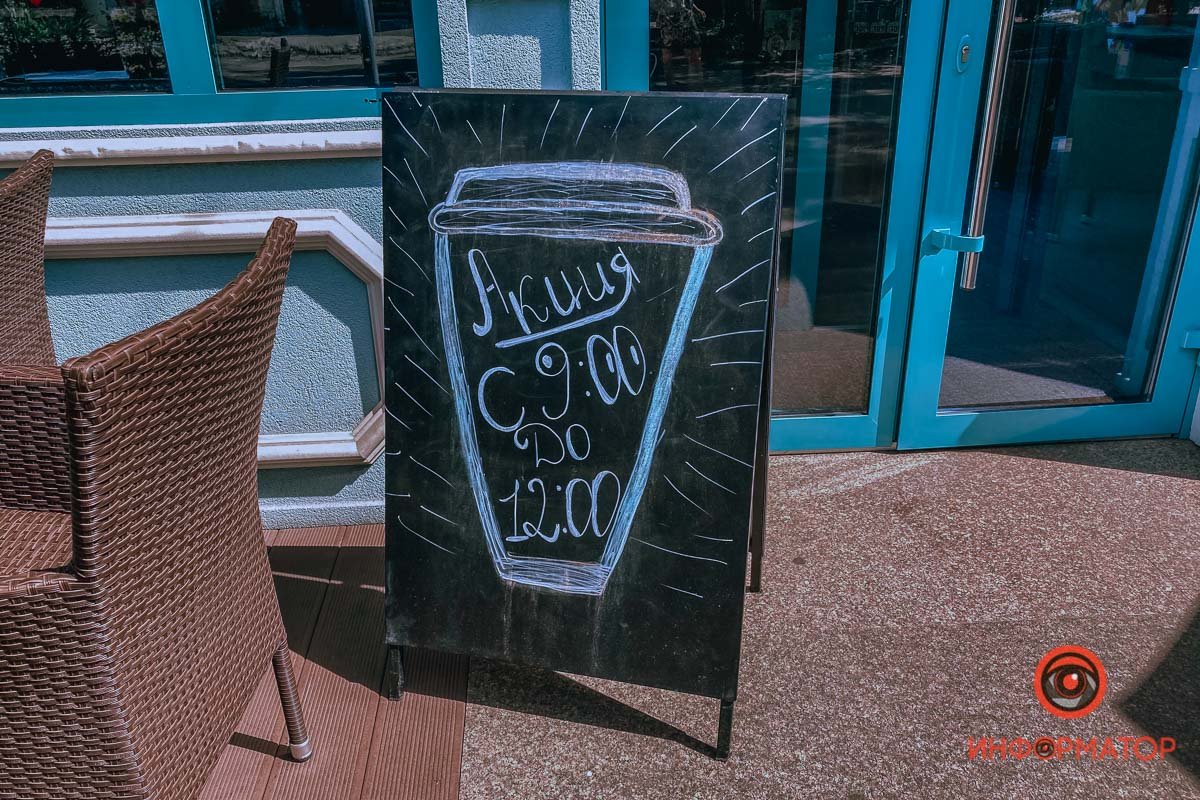 Акция
С 9:00
До
12:00
ИНФОРМАТОР